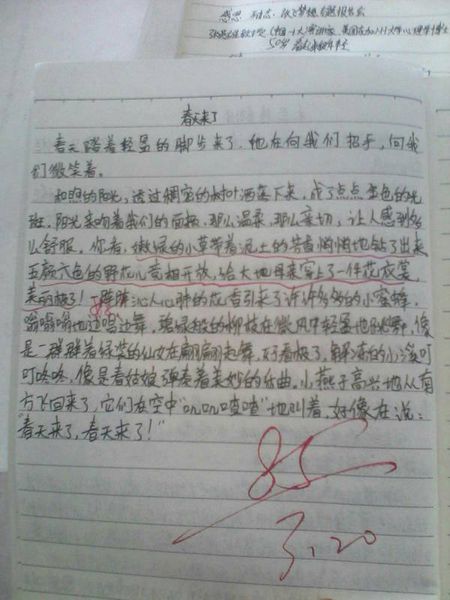 感恩
50岁
春天来了
春天踏着轻盈的脚步来了,他在向我们招手,向我
们微笑着。
和煦的阳光,透过稠密的树叶洒落下来,成了点点金色的光
班,阳光亲吻着我们的面颊,那么温柔,那么亲切,让人感到多
么舒服。你看,嫩绿的小草带着泥土的芳香悄悄地钻了出来
五颜六色的野花儿竞相开放,给大地母亲穿上了一件花衣裳
美丽极了!一阵阵沁人心肺的花香引来了许许多多的小蜜蜂,
嗡嗡嗡地边鸣边舞,碧绿的柳枝在微风中轻盈地跳舞,像
是一群群着绿装的仙女在翩翩起舞,好看极了,解冻的小溪叮
叮咚咚,像是春姑娘弹奏着美妙的乐曲,小燕子高兴地从南
方飞回来了,它们在空中"叽叽喳喳"地叫着,好像在说:
"春天来了,春天来了!"
85
3.20